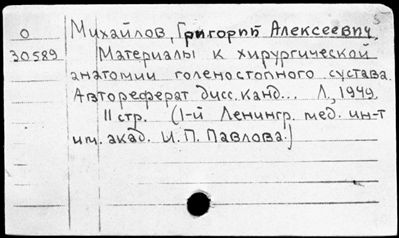 О Михайлов, Григорий Алексеевич,
30589 Материалы к хирургической
анатомии голеностопного сустава.
Автореферат дисс. канд... Л., 1949.
11 стр. (1-й Ленингр. мед. ин-т
им. акад. И. П. Павлова.)